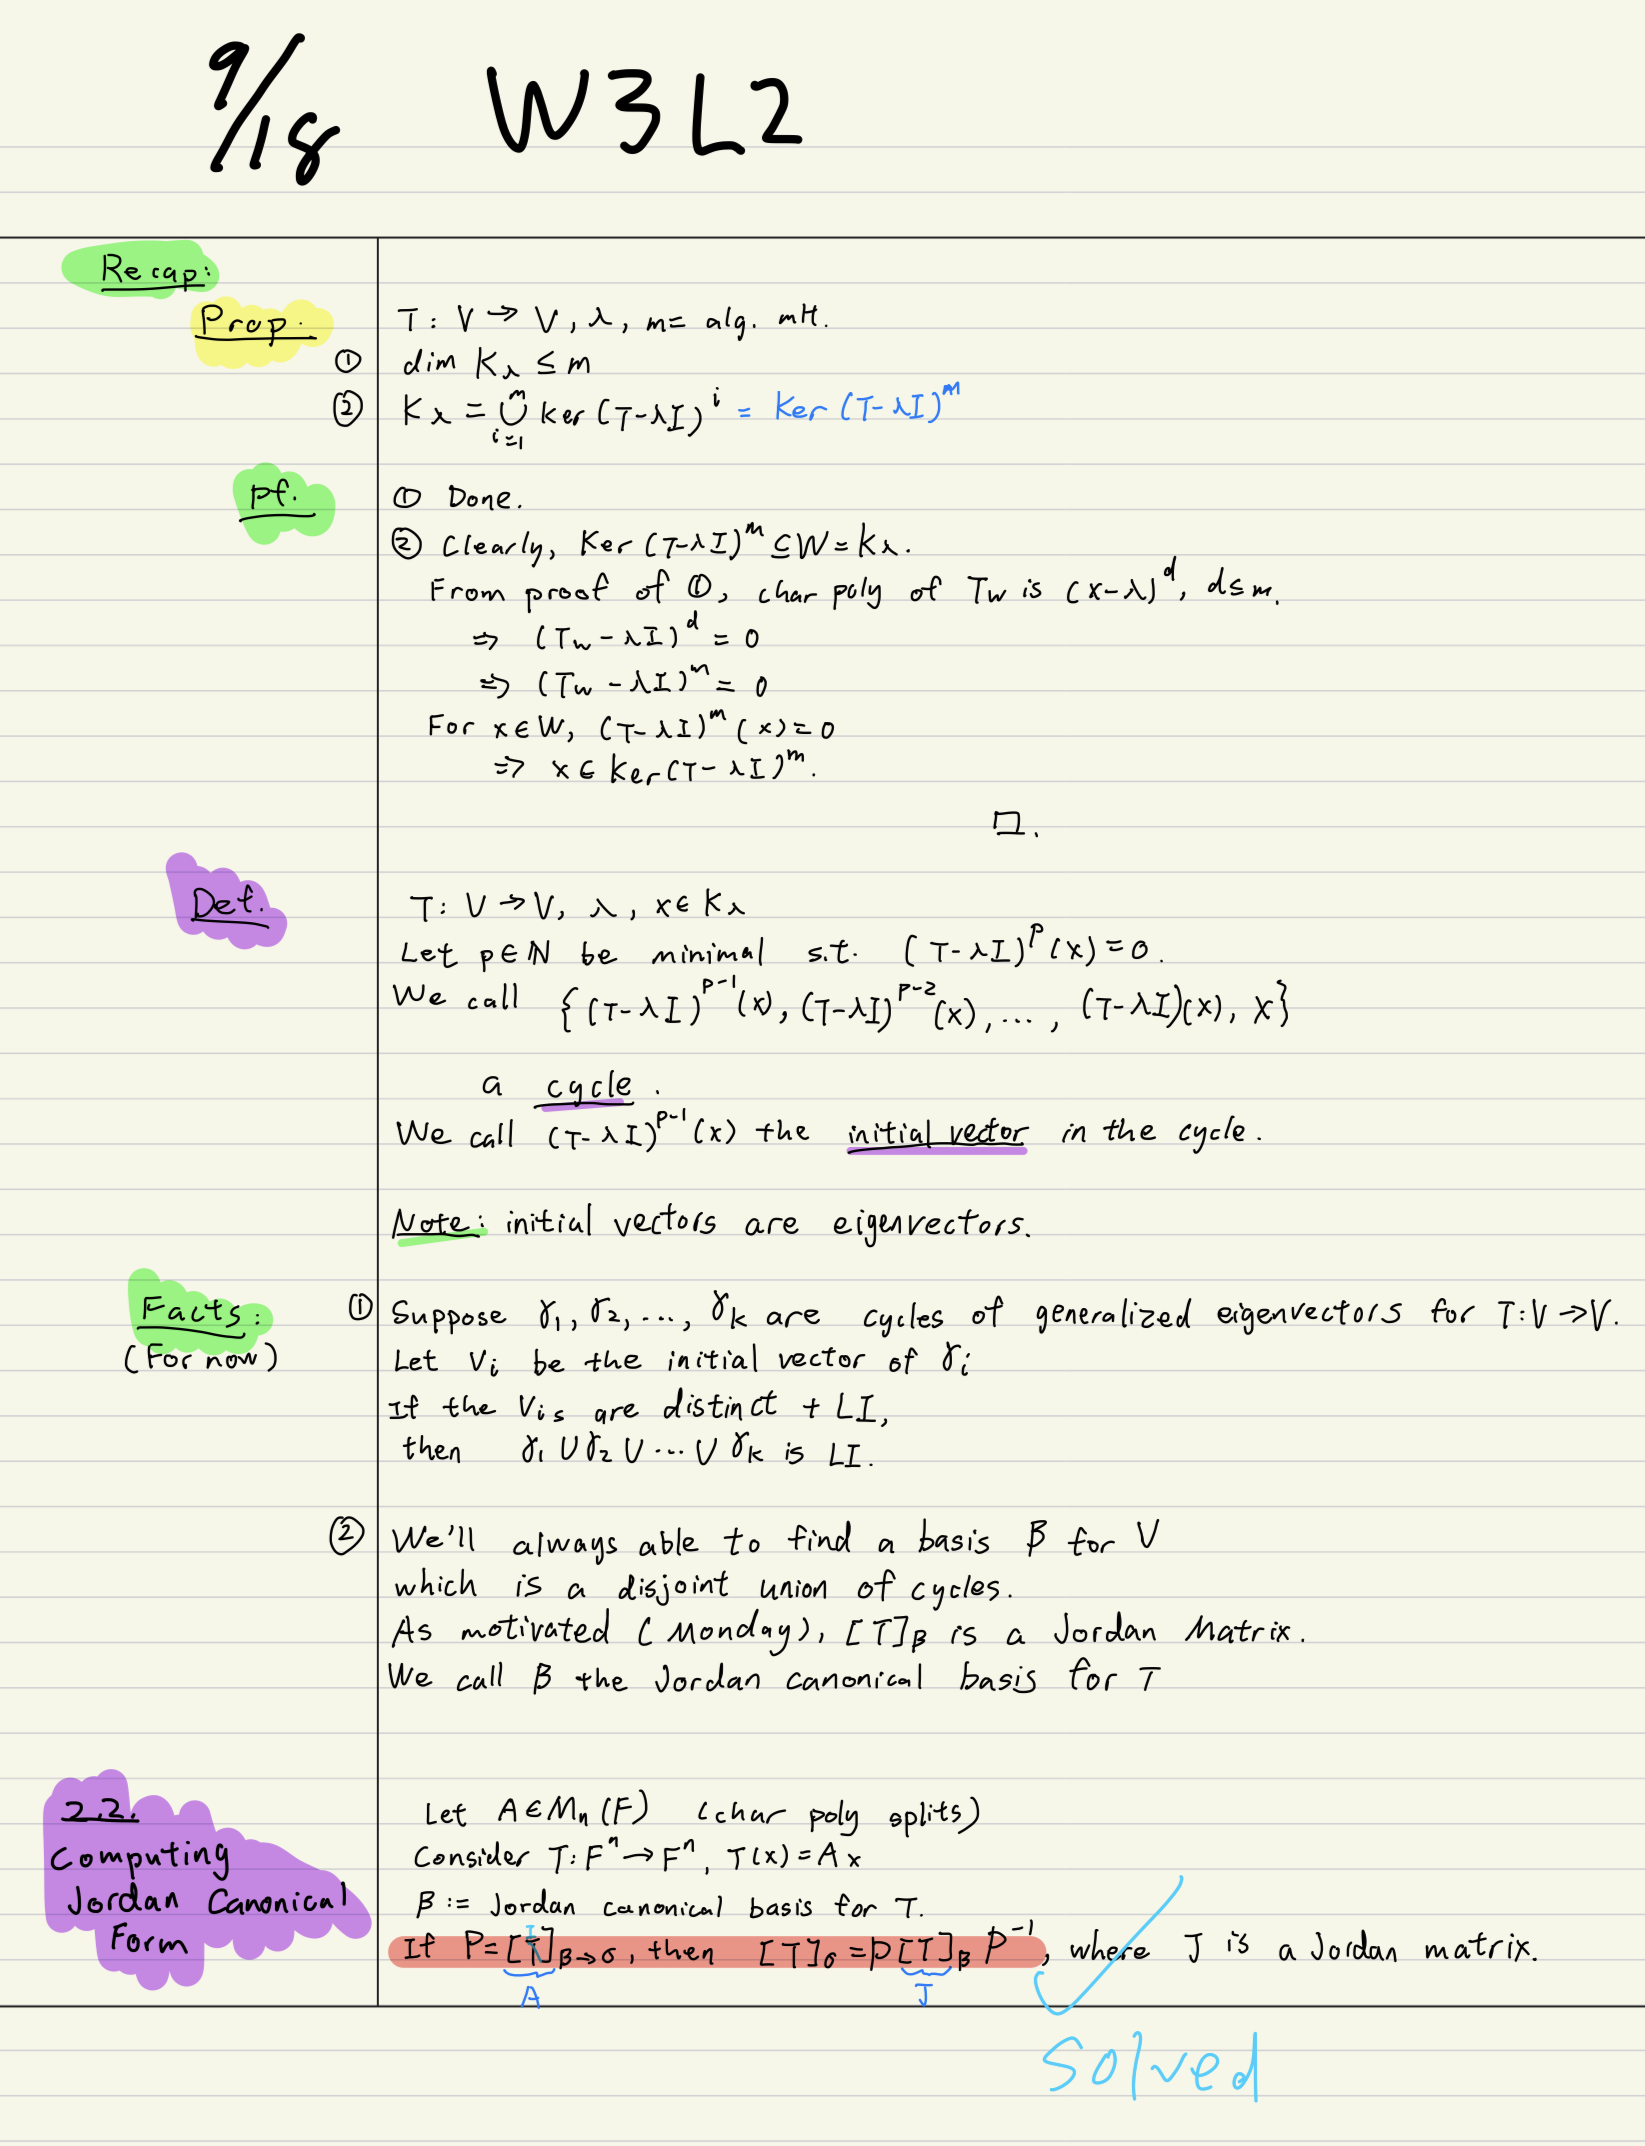 9/18 W3L2
Recap:
Prop. T: V → V, λ, m= alg. mlt.
① dim Kλ ≤ m
② Kλ = ⋃_{i=1}^{m} ker (T-λI)^i = Ker (T-λI)^m
pf. ① Done.
② Clearly, Ker (T-λI)^m ⊆ W = Kλ.
From proof of ①, char poly of Tw is (x-λ)^d, d≤m.
⇒ (Tw - λI)^d = 0
⇒ (Tw - λI)^m = 0
For x∈W, (T-λI)^m (x) = 0
⇒ x ∈ Ker(T-λI)^m.
□.
Def. T: V → V, λ, x∈ Kλ
Let p∈ℕ be minimal s.t. (T-λI)^p (x) = 0.
We call {(T-λI)^{p-1}(x), (T-λI)^{p-2}(x), ..., (T-λI)(x), x}
a cycle.
We call (T-λI)^{p-1}(x) the initial vector in the cycle.
Note: initial vectors are eigenvectors.
Facts: ① Suppose γ₁, γ₂, ..., γk are cycles of generalized eigenvectors for T:V→V.
(For now) Let Vi be the initial vector of γi
If the Vis are distinct + LI,
then γ₁ ∪ γ₂ ∪ ... ∪ γk is LI.
② We'll always able to find a basis β for V
which is a disjoint union of cycles.
As motivated (Monday), [T]β is a Jordan Matrix.
We call β the Jordan canonical basis for T
2.2. Let A∈Mn(F) (char poly splits)
Computing Consider T: F^n → F^n, T(x) = Ax
Jordan Canonical β := Jordan canonical basis for T.
Form If P = [I]β→σ, then [T]σ = P[T]β P^{-1}, where J is a Jordan matrix.
A J
Solved